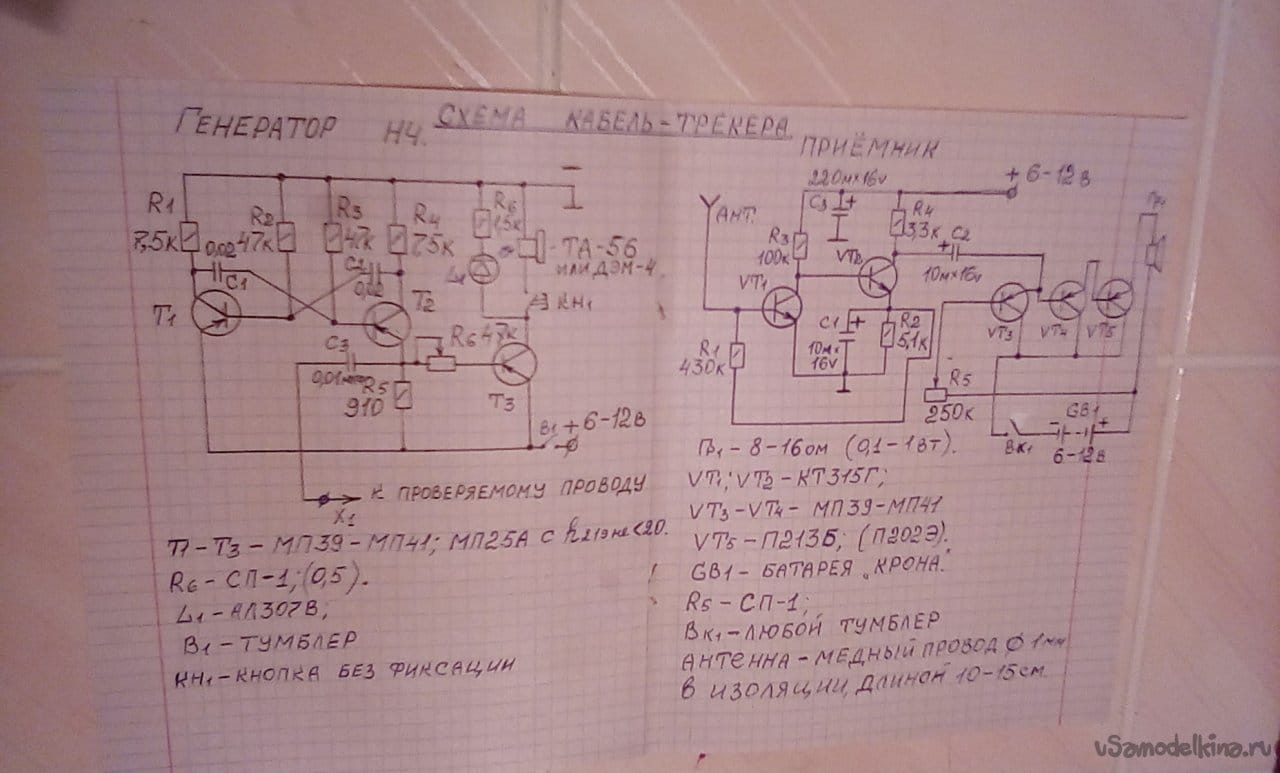 СХЕМА КАБЕЛЬ-ТРЕКЕРА
ГЕНЕРАТОР НЧ.
R1
7,5К
0,02
C1
R2
47К
R3
47К
R4
7,5К
R6
1,5К
ТА-56
ИЛИ ДЭМ-4
КН1
L1
C2
0,02
T1
T2
C3
0,01мкф
R6 47К
R5
910
T3
В1
+6-12В
К ПРОВЕРЯЕМОМУ ПРОВОДУ
X1
T1-T3-МП39-МП41; МП25А С h21э не <20.
R6-СП-1;(0,5).
L1-АЛ307В;
В1-ТУМБЛЕР
КН1-КНОПКА БЕЗ ФИКСАЦИИ
ПРИЁМНИК
220м×16v
+ 6-12В
АНТ.
C3 +
R4
3,3К
Гр1
R3
100К
VT1
VT2
+ C2
10м×16v
C1 +
10м×
16v
R2
5,1К
R1
430К
VT3
VT4
VT5
R5
250К
ВК1
- GB1 +
6-12В
Гр1-8-16ом (0,1-1вт).
VT1; VT2-КТ315Г;
VT3-VT4- МП39-МП41
VT5-П213Б; (П202Э).
GB1-БАТАРЕЯ „КРОНА“.
R5-СП-1;
Вк1-ЛЮБОЙ ТУМБЛЕР
АНТЕННА-МЕДНЫЙ ПРОВОД Ф 1мм
В ИЗОЛЯЦИИ, ДЛИНОЙ 10-15см.
uSamodelkina.ru